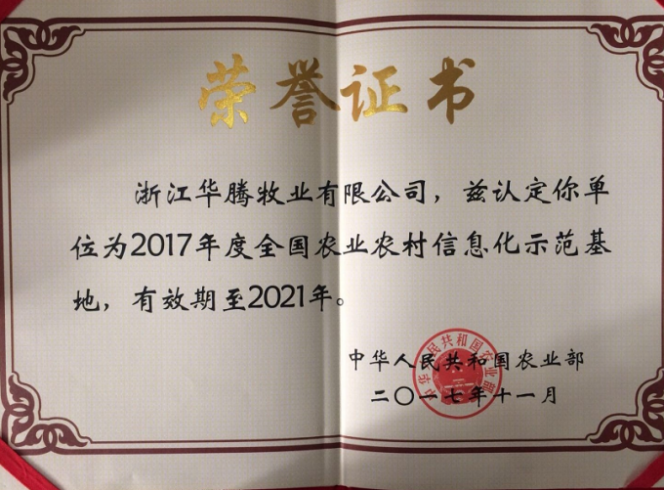 荣誉证书
浙江华腾牧业有限公司，兹认定你单
位为2017年度全国农业农村信息化示范基
地，有效期至2021年。
中华人民共和国农业部
二〇一七年十一月
中华人民共和国农业部